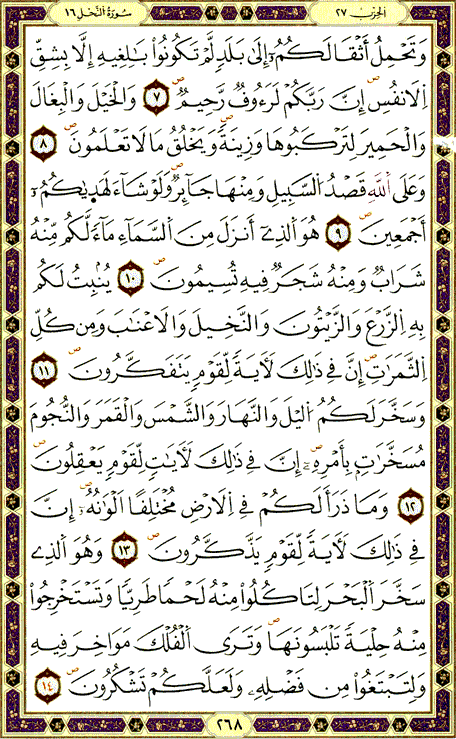 الحِزب ٢٧
سُورَةُ النَّحۡل ١٦
وَتَحۡمِلُ أَثۡقَالَكُمُۥٓ إِلَىٰ بَلَدٖ لَّمۡ تَكُونُواْ بَٰلِغِيهِ إِلَّا بِشِقِّ
اِ۬لَانفُسِۖ إِنَّ رَبَّكُمۡ لَرَءُوفٞ رَّحِيمٞۖ ٧ وَالۡخَيۡلَ وَالۡبِغَالَ
وَالۡحَمِيرَ لِتَرۡكَبُوهَا وَزِينَةٗۖ وَيَخۡلُقُ مَا لَا تَعۡلَمُونَۖ ٨
وَعَلَى اَ۬للَّهِ قَصۡدُ اُ۬لسَّبِيلِ وَمِنۡهَا جَآئِرٞۖ وَلَوۡ شَآءَ لَهَدٜيٰكُمُۥٓ
أَجۡمَعِينَۖ ٩ هُوَ اَ۬لذِےٓ أَنزَلَ مِنَ اَ۬لسَّمَآءِ مَآءٗ لَّكُم مِّنۡهُ
شَرَابٞ وَمِنۡهُ شَجَرٞ فِيهِ تُسِيمُونَۖ ١٠ يُنۢبِتُ لَكُم
بِهِ اِ۬لزَّرۡعَ وَالزَّيۡتُونَ وَالنَّخِيلَ وَالَاعۡنَٰبَ وَمِن كُلِّ
اِ۬لثَّمَرَٰتِۖ إِنَّ فِے ذَٰلِكَ لَأٓيَةٗ لِّقَوۡمٖ يَتَفَكَّرُونَۖ ١١
وَسَخَّرَ لَكُمُ اُ۬ليۡلَ وَالنَّهَارَ وَالشَّمۡسَ وَالۡقَمَرَ وَالنُّجُومَ
مُسَخَّرَٰتِۢ بِأَمۡرِهِۦٓۖ إِنَّ فِے ذَٰلِكَ لَأٓيَٰتٖ لِّقَوۡمٖ يَعۡقِلُونَۖ
١٢ وَمَا ذَرَأَ لَكُمۡ فِے اِ۬لَارۡضِ مُخۡتَلِفاً اَلۡوَٰنُهُۥٓۖ إِنَّ
فِے ذَٰلِكَ لَأٓيَةٗ لِّقَوۡمٖ يَذَّكَّرُونَۖ ١٣ وَهُوَ اَ۬لذِے
سَخَّرَ اَ۬لۡبَحۡرَ لِتَاكُلُواْ مِنۡهُ لَحۡماٗ طَرِيّاٗ وَتَسۡتَخۡرِجُواْ
مِنۡهُ حِلۡيَةٗ تَلۡبَسُونَهَاۖ وَتَرَى اَ۬لۡفُلۡكَ مَوَاخِرَ فِيهِ
وَلِتَبۡتَغُواْ مِن فَضۡلِهِۦ وَلَعَلَّكُمۡ تَشۡكُرُونَۖ ١٤
٢٦٨